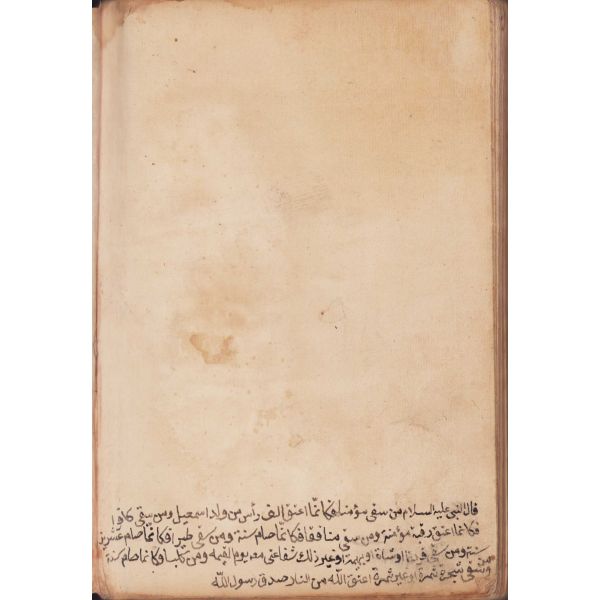 قال النبي عليه السلام من سقى مؤمنا فكانما اعتق الف رأس من ولد اسمعيل ومن سقى كافرا
فكانما اعتق رقبة مؤمنة ومن سقى منافقا فكانما صام سنة ومن سقى طيرا فكانما صام عشرين
سنة ومن سقى او شاة او بهيمة او غير ذلك شفاعتى معه يوم القيمة ومن كلبا فكانما صام كنة
ومن سقى شجرة ثمرة او غير ثمرة اعتق الله من النار صدق رسول الله